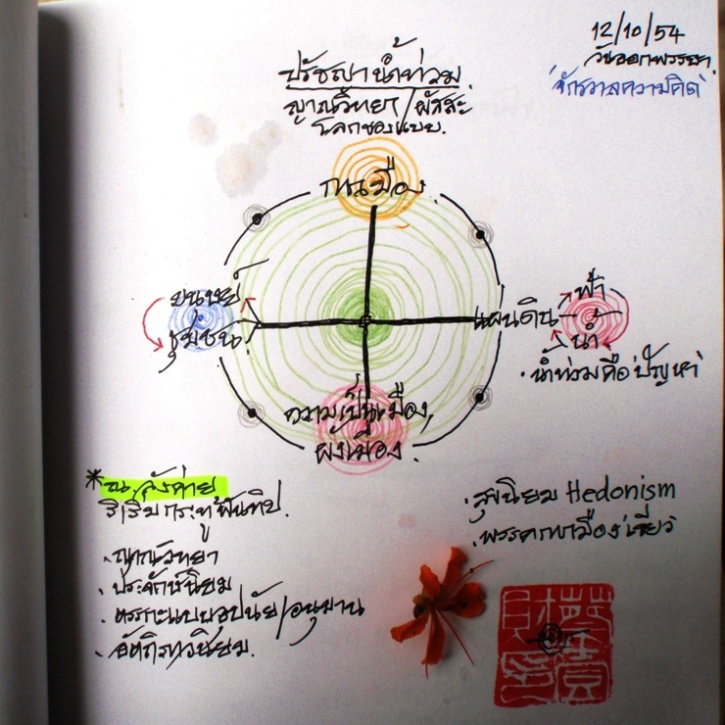 12/10/54
วันออกพรรษา
'จักรวาลความคิด'
ปรัชญาน้ำท่วม
ญาณวิทยา/ผัสสะ
โลกของแบบ.
การเมือง.
มนุษย์
ชุมชน.
แผ่นดิน
ฟ้า
น้ำ
. น้ำท่วมคือปัญหา
ความเป็นเมือง,
ผังเมือง.
ริเริ่มกระทู้พันทิป.
. ญาณวิทยา
. ประจักษ์นิยม
. ตรรกะแบบอุปนัย/อนุมาน
. อัตถิภาวนิยม.
. สุขนิยม Hedonism
. พรรคการเมืองเดียว